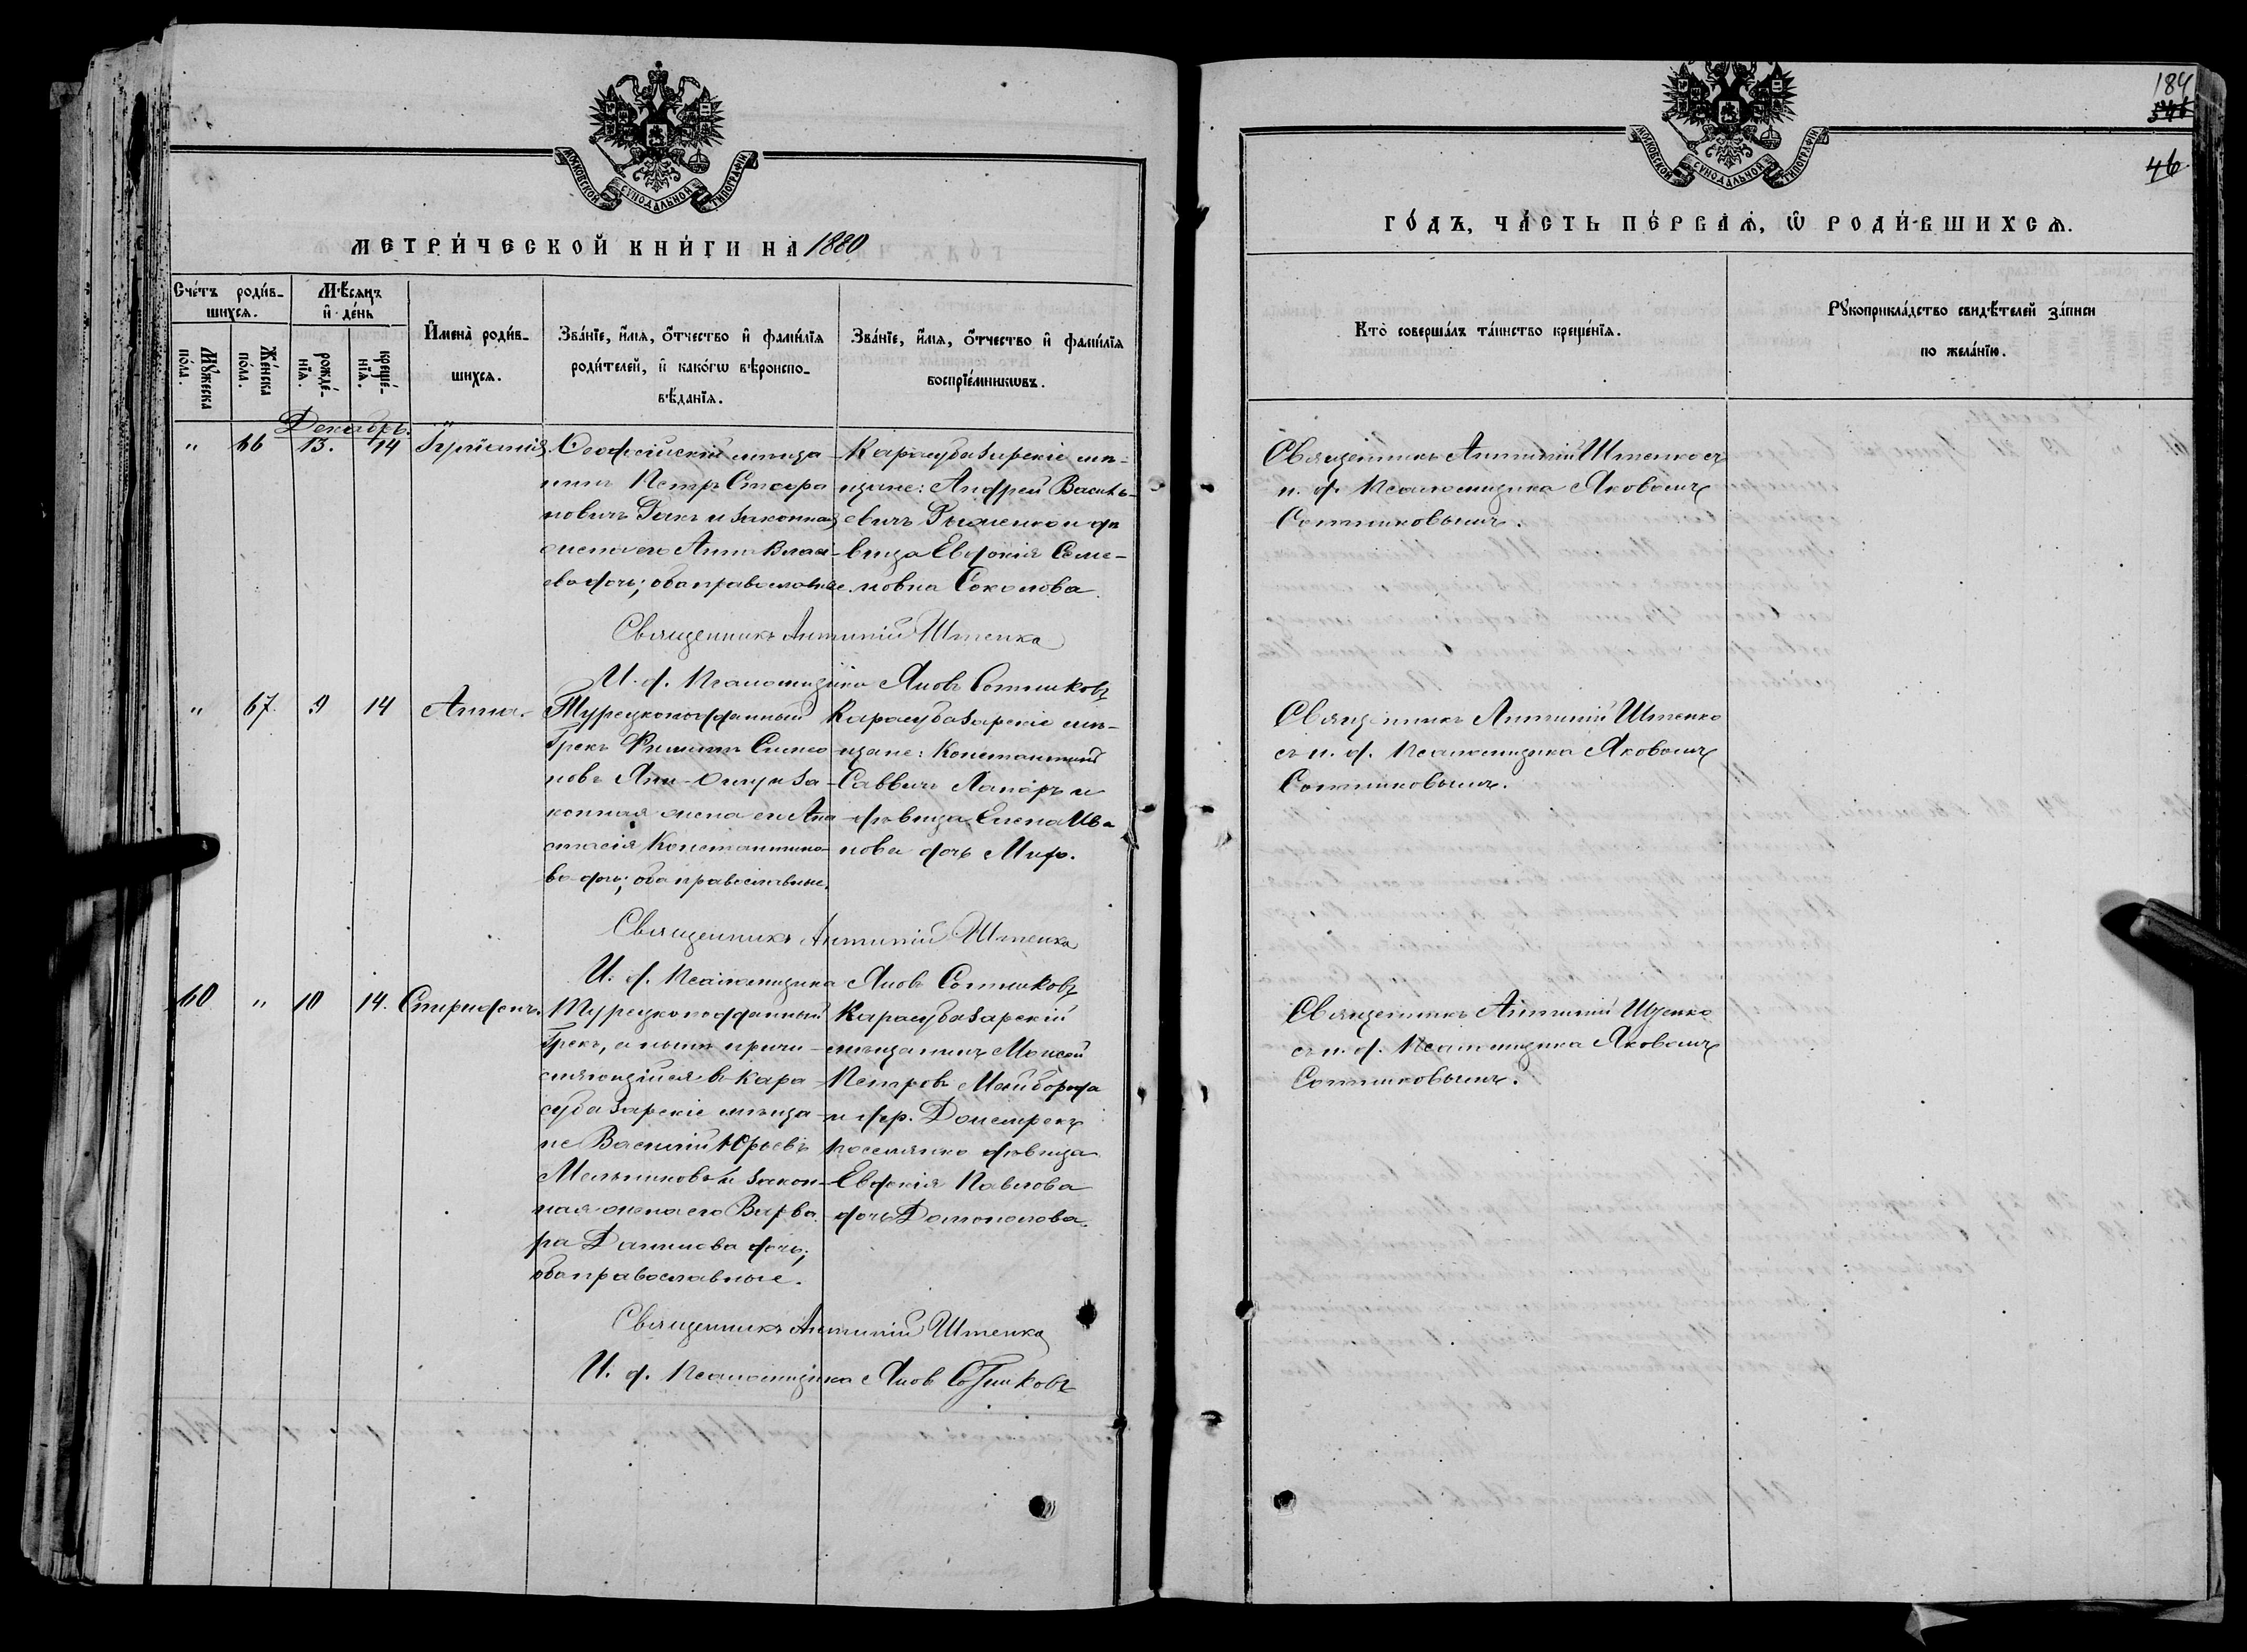 МОСКОВСКОЙ СУНОДАЛЬНОЙ ТИПОГРАФІИ
МЕТРИ́ЧЕСКОЙ КНИ́ГИ НА 1880
Сче́тъ роди́в-
шихсѧ.
Мѣ́сѧцъ
и҆ де́нь
Мꙋ́жеска
по́ла.
Же́нска
по́ла.
рожде́-
нїѧ.
креще́-
нїѧ.
И҆мена̀ роди́в-
шихсѧ.
Зва́нїе, и҆́мѧ, ѻ҆́тчество и҆ фами́лїѧ
роди́телей, и҆ како́гѡ вѣроиспо-
вѣ́данїѧ.
Зва́нїе, и҆́мѧ, ѻ҆́тчество и҆ фами́лїѧ
воспрїе́мникѡвъ.
Декабрь.
" 66 13. 14
Ѳеодосійскій мѣща-
нинъ Петръ
новичъ и законная
жена его Анна Власі-
ева дочь; оба православные.
Карасубазарскіе мѣ-
щане: Андрей Василь-
евичъ и дѣ-
вица Евдокія Семе-
новна Соколова.
Священникъ Антоній Штенко
И. д. Псаломщика Яковъ Сотниковъ
" 67. 9 14 Анна.
Турецкоподданный
Грекъ Филиппъ Симео-
новъ и за-
конная жена его Ана-
стасія Константино-
ва дочь; оба православные.
Карасубазарскіе мѣ-
щане: Константинъ
Саввичъ и
дѣвица Елена Ива-
нова дочь
Священникъ Антоній Штенко
И. д. Псаломщика Яковъ Сотниковъ
60 " 10 14. Спиридонъ.
Турецкоподданный
Грекъ, а нынѣ причи-
сляющійся въ Кара-
субазарскіе мѣща-
не Василій Юрьевъ
Мельниковъ и закон-
ная жена его Варва-
ра Данилова дочь;
оба православные.
Карасубазарскій
мѣщанинъ Моисей
Петровъ Майборода
и дер.
поселянка дѣвица
Евдокія Павлова
дочь
Священникъ Антоній Штенко
И. д. Псаломщика Яковъ Сотниковъ
184
46
МОСКОВСКОЙ СУНОДАЛЬНОЙ ТИПОГРАФІИ
ГО́ДЪ, ЧА́СТЬ ПЕ́РВАѦ, Ѡ҆ РОДИ́ВШИХСѦ.
Кто̀ соверша́лъ та́инство креще́нїѧ.
Рꙋкоприкла́дство свидѣ́телей за́писи
по жела́нїю.
Священникъ Антоній Штенко съ
и. д. Псаломщика Яковомъ
Сотниковымъ.
Священникъ Антоній Штенко
съ и. д. Псаломщика Яковомъ
Сотниковымъ.
Священникъ Антоній Штенко
съ и. д. Псаломщика Яковомъ
Сотниковымъ.